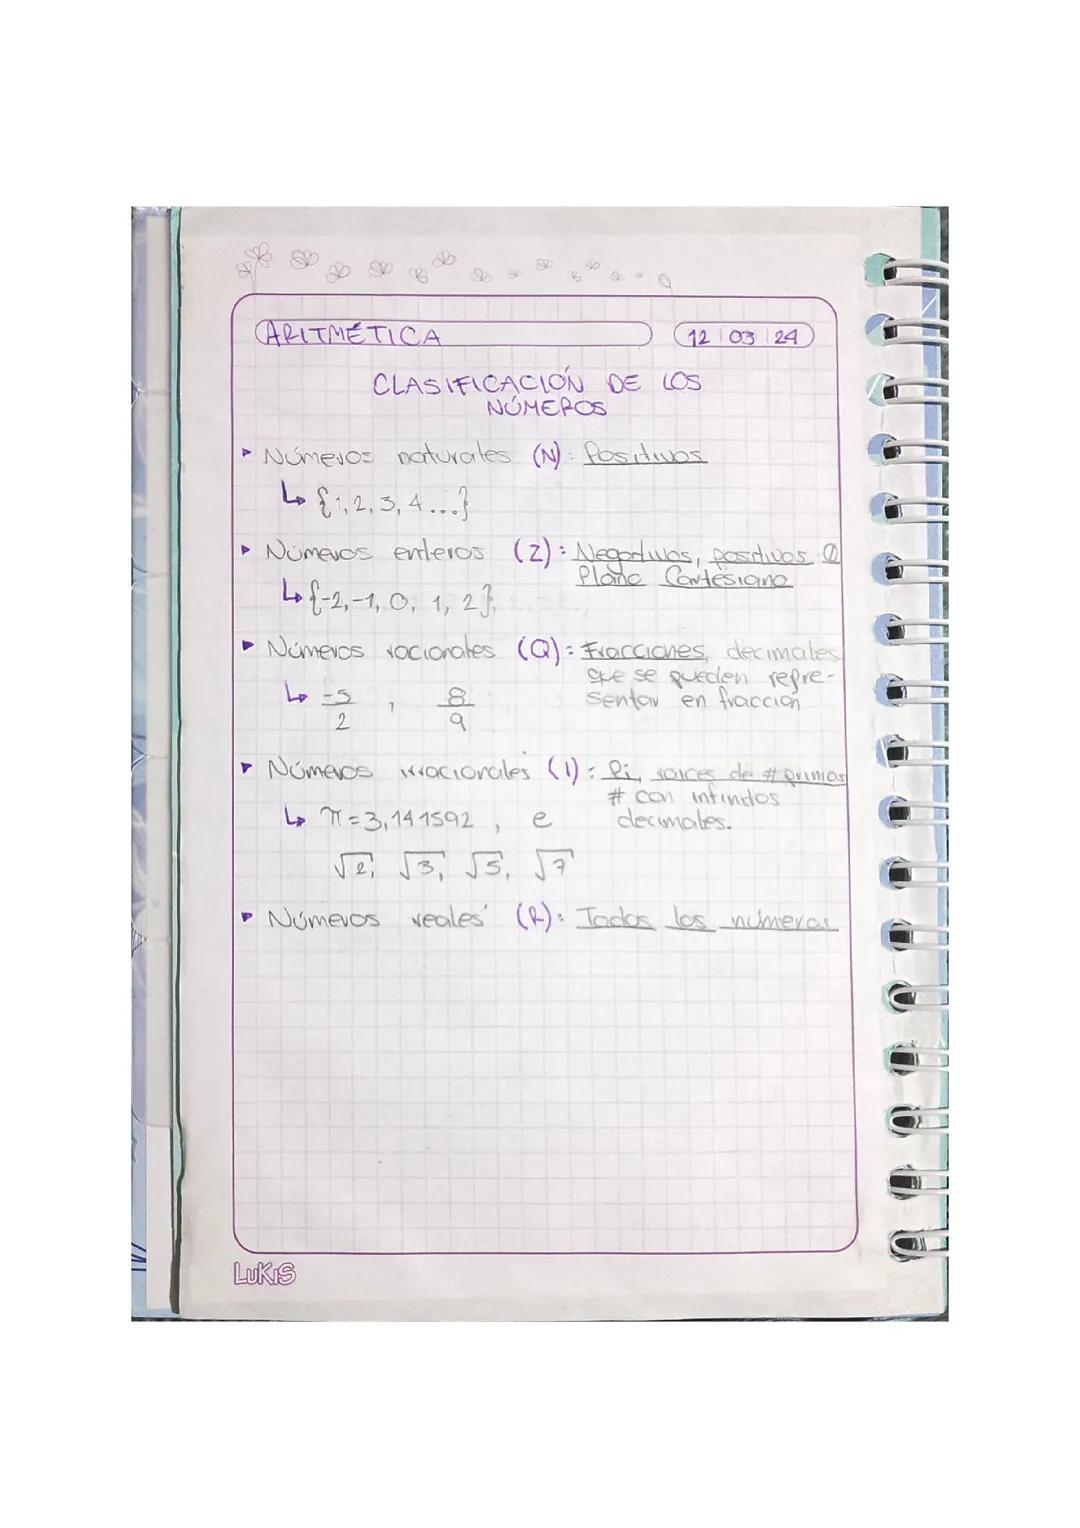 ARITMÉTICA
12 03 24
CLASIFICACIÓN DE LOS
NÚMEROS
Números naturales (N): Positivos
{1, 2, 3, 4...}
Números enteros (Z): Negativos, positivos, 0
Plano Cartesiano
{-2, -1, 0, 1, 2}
Números racionales (Q): Fracciones, decimales
que se pueden repre-
sentar en fracción
-5/2, 8/9
Números irracionales (I): Pi, raíces de # primos
# con infinitos
decimales.
π = 3,141592, e
√2, √3, √5, √7
Números reales (R): Todos los números
LUKIS